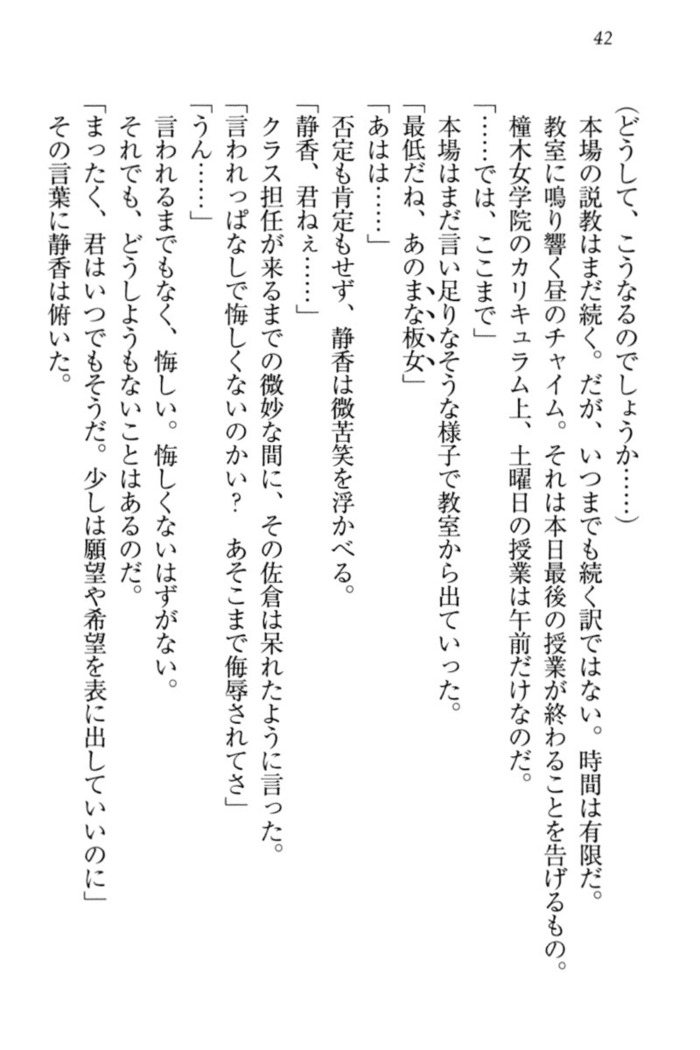 42
(どうして、こうなるのでしょうか……)
本場の説教はまだ続く。だが、いつまでも続く訳ではない。時間は有限だ。
教室に鳴り響く昼のチャイム。それは本日最後の授業が終わることを告げるもの。
橦木女学院のカリキュラム上、土曜日の授業は午前だけなのだ。
「……では、ここまで」
本場はまだ言い足りなそうな様子で教室から出ていった。
「最低だね、あのまな板女」
「あはは……」
否定も肯定もせず、静香は微苦笑を浮かべる。
「静香、君ねぇ……」
クラス担任が来るまでの微妙な間に、その佐倉は呆れたように言った。
「言われっぱなしで悔しくないのかい?　あそこまで侮辱されてさ」
「うん……」
言われるまでもなく、悔しい。悔しくないはずがない。
それでも、どうしようもないことはあるのだ。
「まったく、君はいつでもそうだ。少しは願望や希望を表に出していいのに」
その言葉に静香は俯いた。